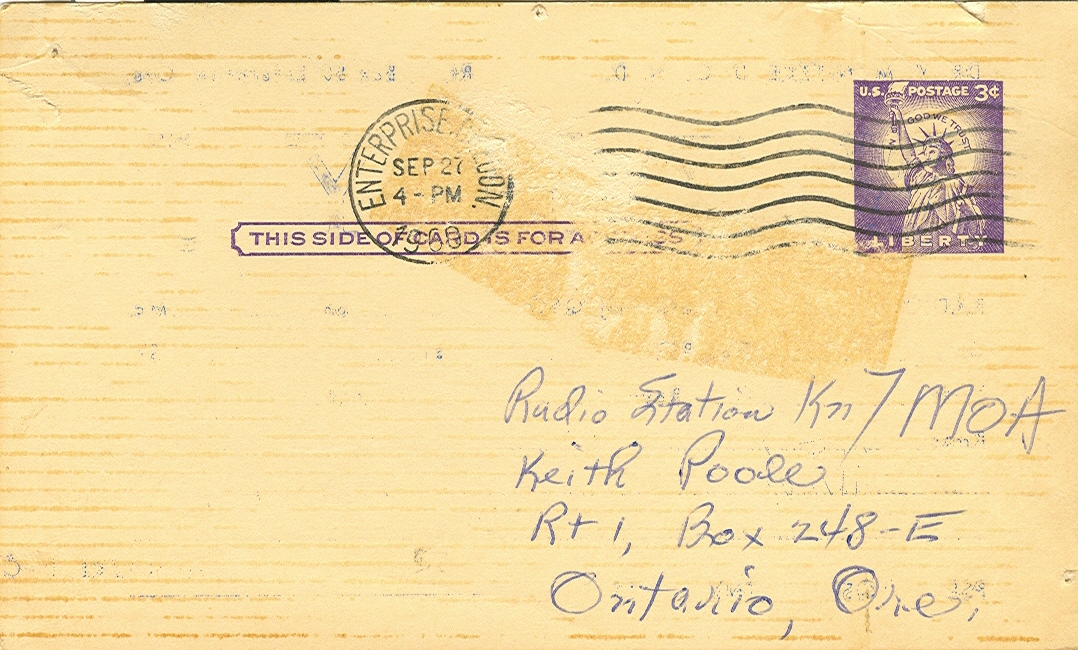 U.S. POSTAGE 3¢
IN GOD WE TRUST
LIBERTY
ENTERPRISE
SEP 27
4 - PM
THIS SIDE OF CARD IS FOR
Radio Station Kn7MOA
Keith Poole
Rt 1, Box 248-E
Ontario, Ore.